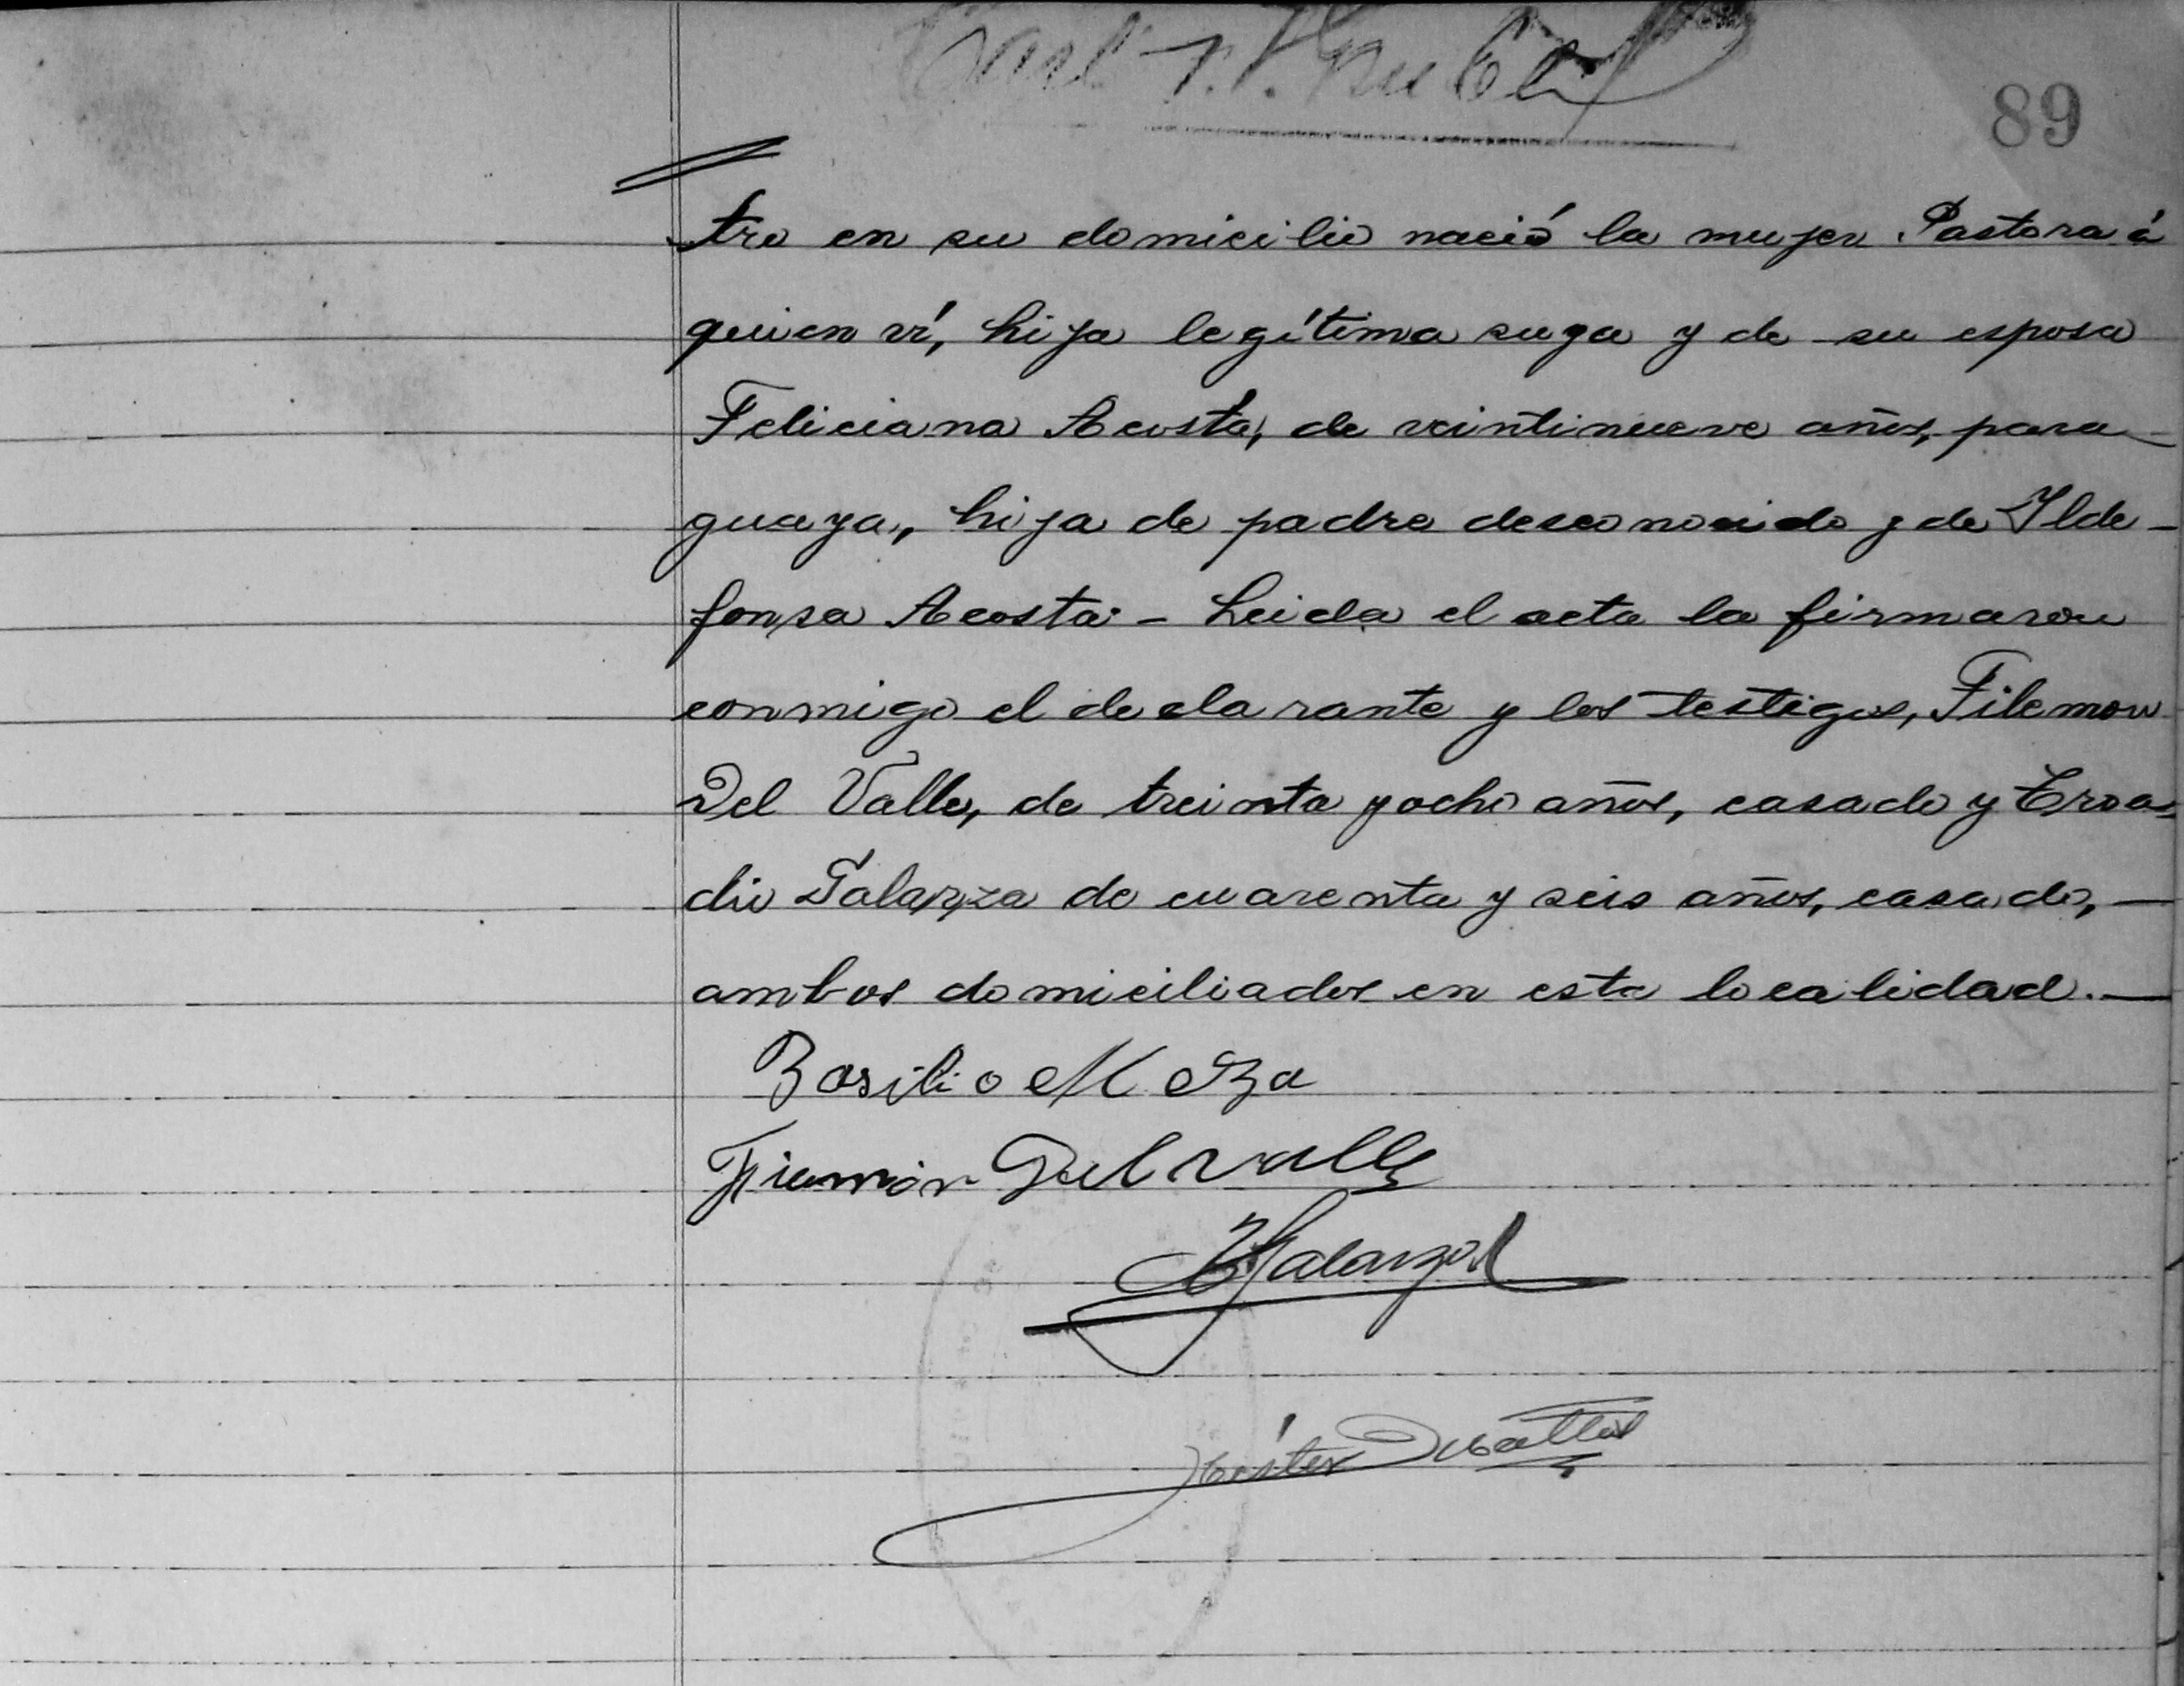 89
tro en su domicilio nació la mujer Pastora á
quien ví, hija legítima suya y de su esposa
Feliciana Acosta, de veintinueve años, para
guaya, hija de padre desconocido y de Ilde-
fonsa Acosta.- Leida el acta la firmaron
conmigo el declarante y los testigos, Filemon
Del Valle, de treinta y ocho años, casado y
dio Galarza de cuarenta y seis años, casado,-
ambos domiciliados en esta localidad.-
Basilio Meza
Del Valle
Galarza